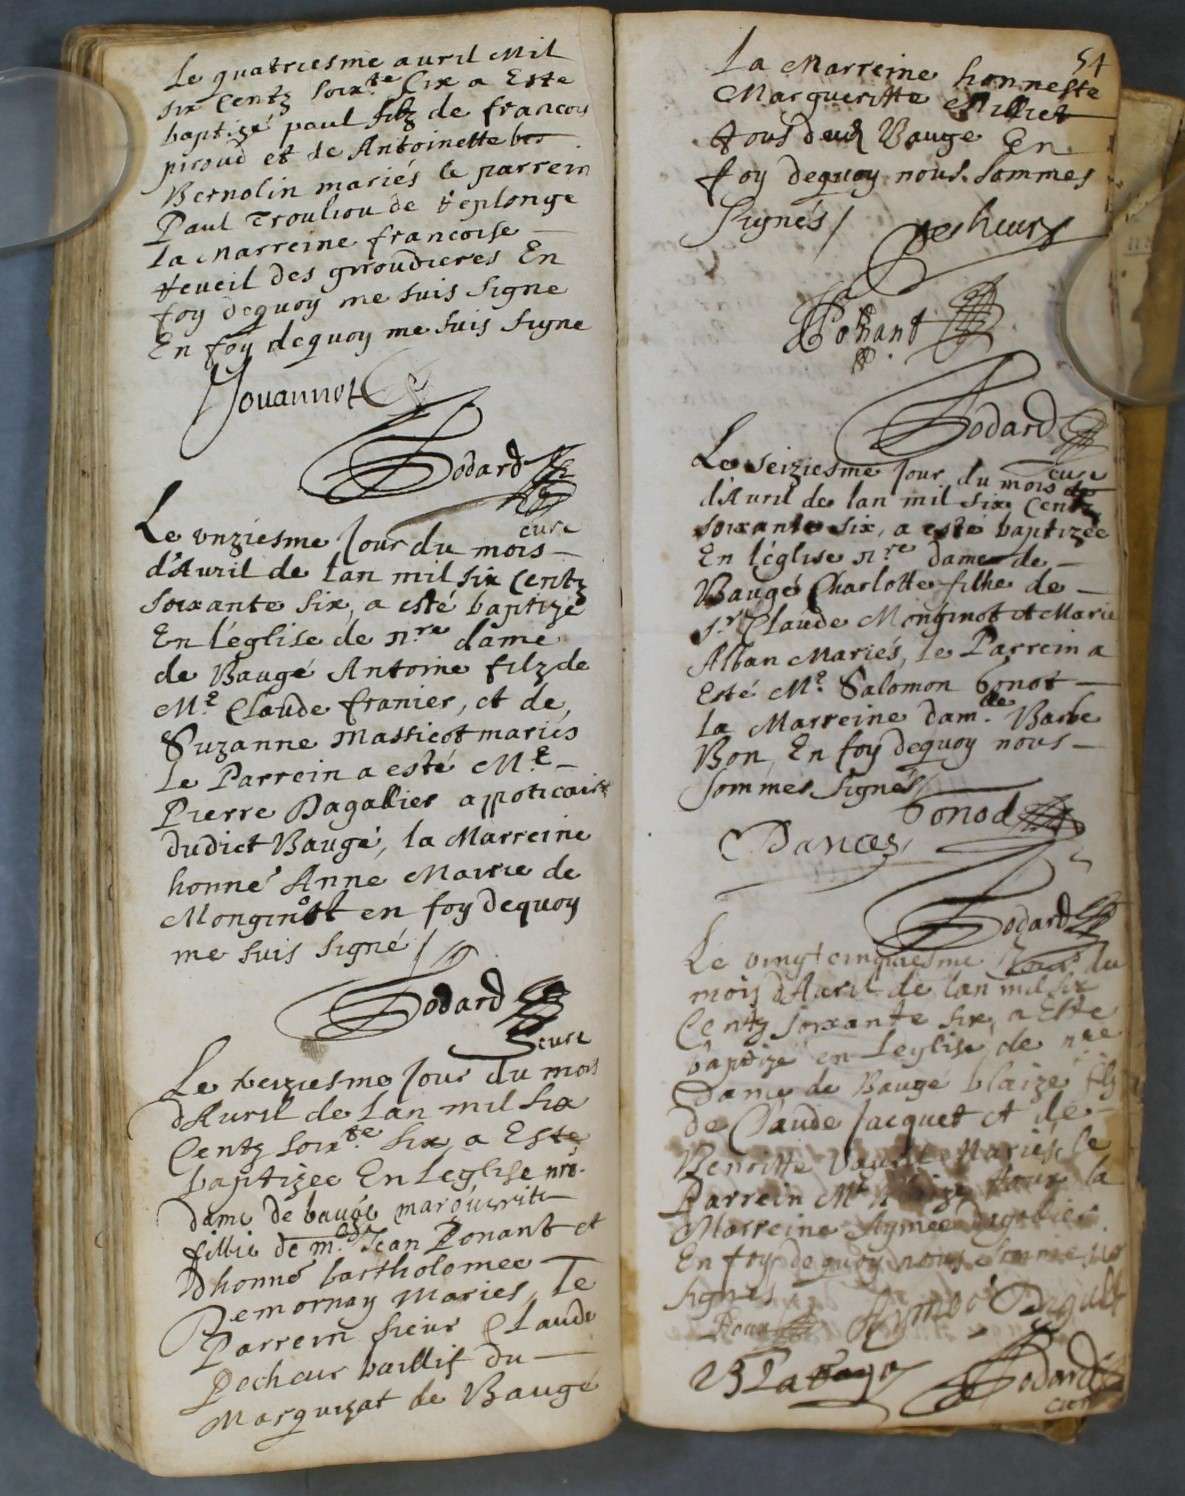 Le quatriesme auril Mil
six Centz soix.te Six a Este
baptizé paul filz de francois
piroud et de Antoinette
Bernolin mariés le parrein
Paul Trouliou de Replonge
la Marreine francoise
Reueil des giroudieres En
foy dequoy me suis signe
En foy dequoy me suis signe
Jouannot
Godard
cure
Le vnziesme Jour du mois
d'Auril de lan mil six Centz
soixante six, a esté baptizé
En l'église de n.re dame
de Baugé Antoine filz de
M.e Claude franier, et de
Suzanne Massicot mariés
le Parrein a esté M.e
Pierre Dagallier appoticaire
dudict Baugé, la Marreine
honne Anne Marie de
Monginot en foy dequoy
me suis signé /
Godard
cure
Le treiziesme Jour du mois
d'Auril de lan mil six
Centz soix.te six, a Este
baptizée En Leglise nre.
dame de baugé marguerite
fillie de Jean Ponant et
dhonne bartholomee
Demornay Mariés, Le
Parrein sieur Claude
Decheur baillif du
Marquizat de Baugé
54
la Marreine honneste
Margueritte Milliet
tous deux Bauge En
foy dequoy nous sommes
signés /
Decheurs
Ponant
Godard
cure
Le seiziesme Jour du mois
d'Auril de lan mil six Centz
soixante six, a esté baptizée
En l'église n.re dame de
Baugé Charlotte fillie de
s.r Claude Monginot et Marie
Alban Mariés, le Parrein a
Esté M.e Salomon Gonot
la Marreine dam.lle Barbe
Bon, En foy dequoy nous
sommes signés /
Gonod
Dances
Godard
Le vingt cinquiesme Jour du
mois d'Auril de lan mil six
Centz soixante six, a Este
baptizé en Leglise de nre
Dame de Baugé blaize filz
de Claude Jacquet et de
Benoitte Mariés, le
Parrein M.e la
Marreine Aymée
En foy dequoy nous sommes
signés
Aymée
Godard
cure